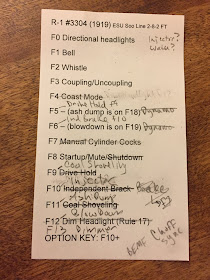 R-1 #3304 (1919) ESU Soo Line 2-8-2 FT
F0 Directional headlights Injector?
Water?
F1 Bell
F2 Whistle
F3 Coupling/Uncoupling
F4 Coast Mode
Drive Hold F9
F5 – (ash dump is on F18) Dynamo
Ind Brake F10
F6 – (blowdown is on F19) Dynamo
F7 Manual Cylinder Cocks
F8 Startup/Mute/Shutdown
Coal Shoveling
F9 Drive Hold
Injector
F10 Independent Brack Brake
Ash Dump
F11 Coal Shoveling
Blowdown
F12 Dim Headlight (Rule 17)
F13 Dimmer
OPTION KEY: F10+
BEMF Chuff
sync